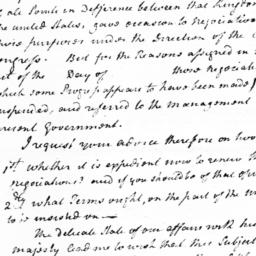 all Points in Difference between that Kingdom
the united States, gave occasion to negotiation
those purposes under the Direction of the
Congress. But for the Reasons assigned in
of the Day of those negotiat
which some Progress appears to have been made)
suspended, and referred to the management
present Government.
I request your advice therefore on two
1st whether it is expedient now to renew th
negotiations? and if you should be of that opi
2dly what Terms ought, on the part of the un
to be insisted on—
The delicate State of our affairs with his
majesty lead me to wish that this Subject